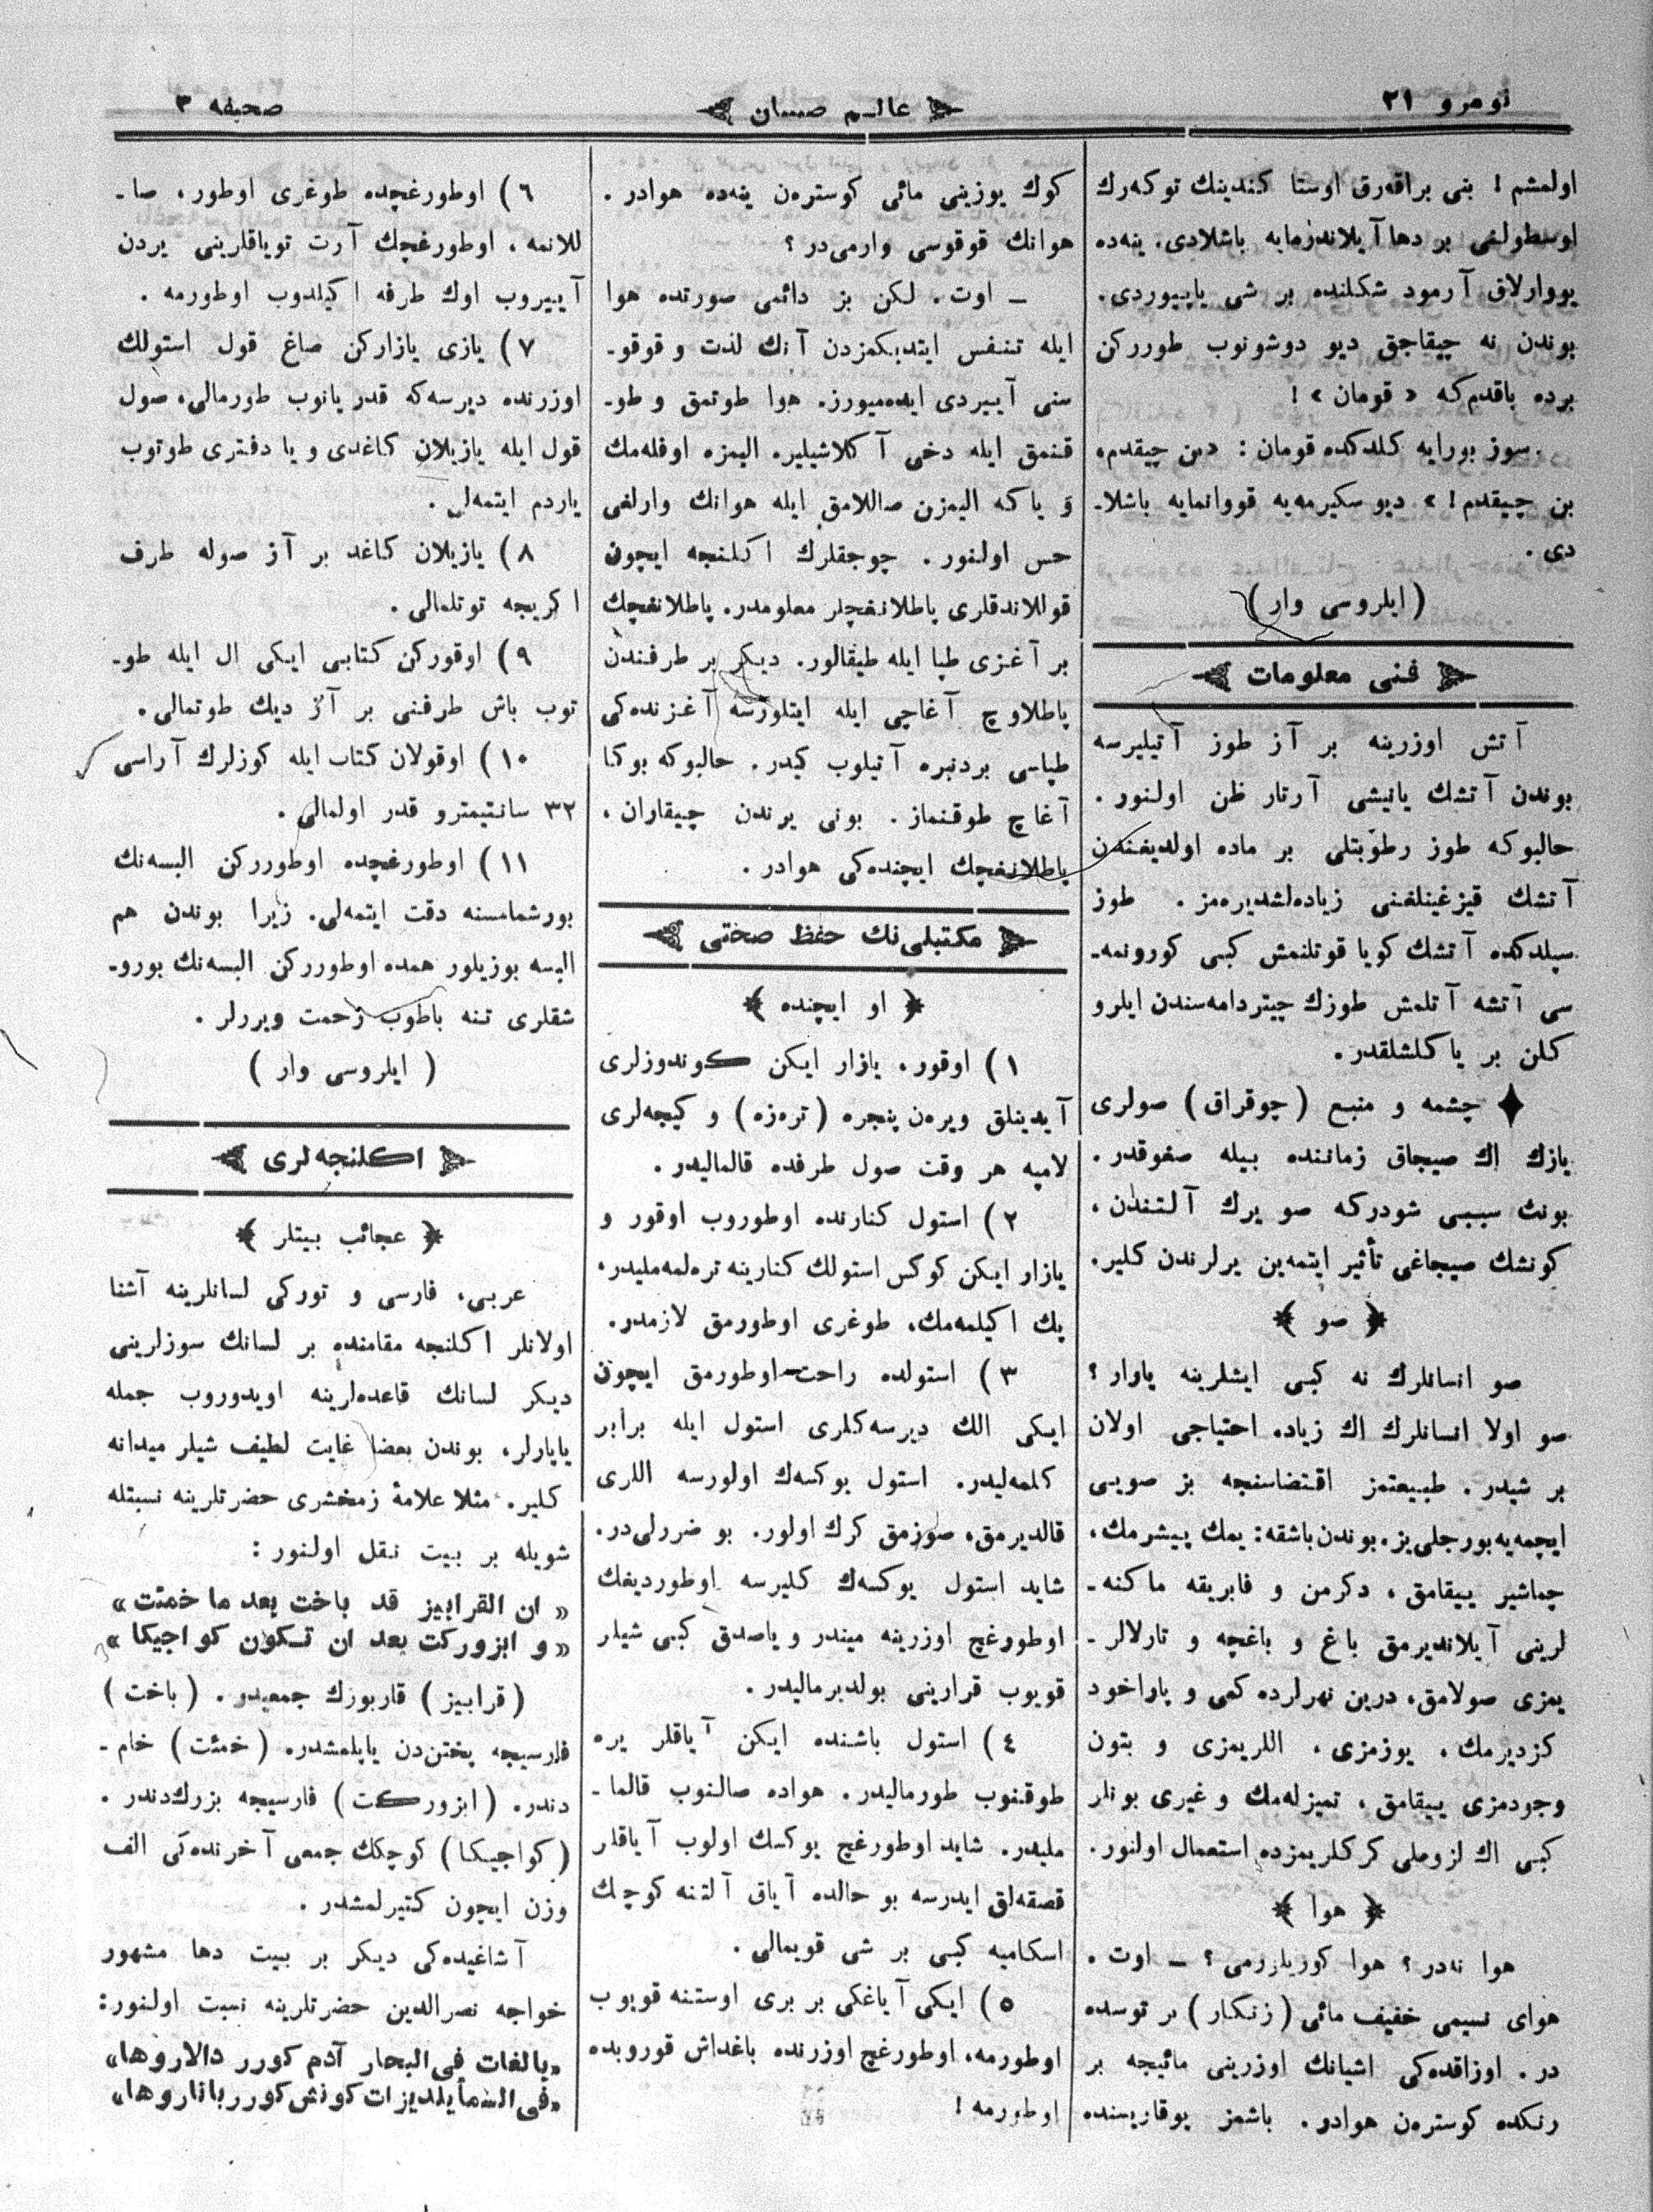 نومرو ٢١
عالـم صبيان
صحيفه ٣
اولمشم ! بنى براقه‌رق اوستا كندينك توكه‌رك
اوسطولغى بر دها آيلاندرمايه باشلادى. ينه‌ده
يووارلاق آرمود شكلنده بر شى ياپييوردى.
بوندن نه چيقاجق ديو دوشونوب طوررکن
برده باقدم‌كه « قومان » !
سوز بورايه كلدكده قومان : «بن چيقدم،
بن چيقدم ! » ديو سكيرمه‌يه قووانمايه باشلا-
دى .
( ايلروسى وار )
فنى معلومات
آتش اوزرينه بر آز طوز آتيليرسه
بوندن آتشك يانيشى آرتار ظن اولنور .
حالبوكه طوز رطوبتلى بر ماده اولديغندن
آتشك قيزغينلغنى زياده‌لشديره‌مز . طوز
سپلدكده آتشك كويا قوتلنمش كبى كورونمه-
سى آتشه آتلمش طوزك چيتردامه‌سندن ايلرو
كلن بر ياكلشلقدر.
چشمه و منبع ( چوقراق ) صولرى
يازك اك صيجاق زماننده بيله صغوقدر.
بونك سببى شودركه صو يرك آلتندن ،
كونشك صيجاغى تأثير ايتمه‌ين يرلرندن كلير.
﴿ صو ﴾
صو انسانلرك نه كبى ايشلرينه يارار ؟
صو اولا انسانلرك اك زياده احتياجى اولان
بر شيدر . طبيعتمز اقتضاسنجه بز صويى
ايچمه‌يه بورجلى‌يز. بوندن باشقه : يمك پيشرمك،
چماشير ييقامق ، دكرمن و فابريقه ماكنه-
لرينى آيلانديرمق باغ و باغچه و تارلالر-
يمزى صولامق، درين نهرلرده كمى و پاراخود
كزديرمك ، يوزمزى ، اللريمزى و بتون
وجودمزى ييقامق ، تميزله‌مك و غيرى بونلر
كبى اك لزوملى كركلريمزده استعمال اولنور.
﴿ هوا ﴾
هوا نه‌در ؟ هوا كوزيلارومى ؟ ـ اوت .
هواى نسيمى خفيف مائى ( زنكار ) بر توسده
در . اوزاقده‌كى اشيانك اوزرينى مائيجه بر
رنكده كوستره‌ن هوادر. باشمز يوقاريسنده
كوك يوزينى مائى كوستره‌ن ينه‌ده هوادر.
هوانك قوقوسى وارمى‌در ؟
ـ اوت. لكن بز دائمى صورتده هوا
ايله تنفس ايتديكمزدن آنك لذت و قوقو-
سنى آييردى ايده‌ميورز. هوا طوتمق و طو-
قنمق ايله دخى آكلاشيلير. اليمزه اوفله‌مك
و ياكه اليمزن صاللامق ايله هوانك وارلغى
حس اولنور . چوجقلرك اكلنجه ايچون
قوللاندقلرى پاطلانغچلر معلومدر. پاطلانغچك
بر آغزى طپا ايله طيقالور. ديكر بر طرفندن
پاطلاوچ آغاچى ايله ايتلورسه آغزنده‌كى
طپاسى بردنبره آتيلوب كيدر. حالبوكه بوكا
آغاچ طوقنماز . بونى يرندن چيقاران ،
پاطلانغچك ايچنده‌كى هوادر .
مكتبلى‌نك حفظ صحتى
﴿ او ايچنده ﴾
١ ) اوقور، يازار ايكن كوندوزلرى
آيدينلق ويره‌ن پنجره ( تره‌زه ) و كيجه‌لرى
لامپه هر وقت صول طرفده قالماليدر.
٢ ) استول كنارنده اوطوروب اوقور و
يازار ايكن كوكس استولك كنارينه تره‌لمه‌مليدر،
پك اكيلمه‌مك، طوغرى اوطورمق لازمدر.
٣ ) استولده راحت اوطورمق ايچون
ايكى الك ديرسه‌كلرى استول ايله برابر
كلمه‌ليدر. استول يوكسك اولورسه اللرى
قالديرمق، صوزمق كرك اولور. بو ضررلى‌در.
شايد استول يوكسك كليرسه اوطورديغك
اوطورغچ اوزرينه ميندر و ياصدق كبى شيلر
قويوب قرارينى بولديرماليدر .
٤ ) استول باشنده ايكن آياقلر يره
طوقنوب طورماليدر. هواده صالنوب قالما-
مليدر. شايد اوطورغچ يوكسك اولوب آياقلر
قصقه‌لق ايدرسه بو حالده آياق آلتنه كوچك
اسكاميه كبى بر شى قويمالى .
٥ ) ايكى آياغكى بر برى اوستنه قويوب
اوطورمه، اوطورغچ اوزرنده باغداش قوروبده
اوطورمه !
٦ ) اوطورغچده طوغرى اوطور، صا-
للانمه ، اوطورغچك آرت توياقلرينى يردن
آييروب اوك طرفه اكيلدوب اوطورمه .
٧ ) يازى يازاركن صاغ قول استولك
اوزرنده ديرسه‌كه قدر يانوب طورمالى، صول
قول ايله يازيلان كاغدى و يا دفترى طوتوب
ياردم ايتمه‌لى .
٨ ) يازيلان كاغد بر آز صوله طرف
اكريجه توتلمالى .
٩ ) اوقوركن كتابى ايكى ال ايله طو-
توب باش طرفنى بر آز ديك طوتمالى.
١٠ ) اوقولان كتاب ايله كوزلرك آراسى
٣٢ سانتيمترو قدر اولمالى .
١١ ) اوطورغچده اوطوررکن البسه‌نك
بورشمامسنه دقت ايتمه‌لى. زيرا بوندن هم
البسه بوزيلور همده اوطوررکن البسه‌نك بورو-
شقلرى تنه باطوب زحمت ويررلر .
( ايلروسى وار )
اكلنجه‌لرى
﴿ عجائب بيتلر ﴾
عربى، فارسى و توركى لسانلرينه آشنا
اولانلر اكلنجه مقامنده بر لسانك سوزلرينى
ديكر لسانك قاعده‌لرينه اويدوروب جمله
ياپارلر، بوندن بعضا غايت لطيف شيلر ميدانه
كلير. مثلا علامۀ زمخشرى حضرتلرينه نسبتله
شويله بر بيت نقل اولنور :
« ان القرابيز قد باخت بعد ما خمئت »
« و ابزوركت بعد ان تسكون كواجيكا »
( قرابيز ) قاربوزك جمعيدر . ( باخت )
فارسيجه پختن‌دن ياپلمشدر. ( خمئت ) خام-
دندر. ( ابزوركت ) فارسيجه بزرك‌دندر.
( كواجيكا ) كوچكك جمعى آخرنده‌كى الف
وزن ايچون كتيرلمشدر .
آشاغيده‌كى ديكر بر بيت دها مشهور
خواجه نصرالدين حضرتلرينه نسبت اولنور:
«بالغات فى البحار آدم كورر دالاروها»
«فى السمأ يلديزات كونش كورر باناروها»